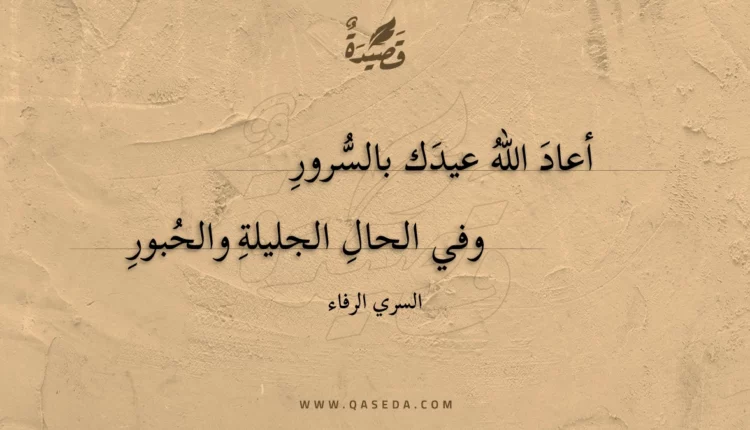 قَصِيدَةٌ
أعادَ اللهُ عيدَك بالسُّرورِ
وفي الحالِ الجليلةِ والحُبورِ
السري الرفاء
WWW.QASEDA.COM